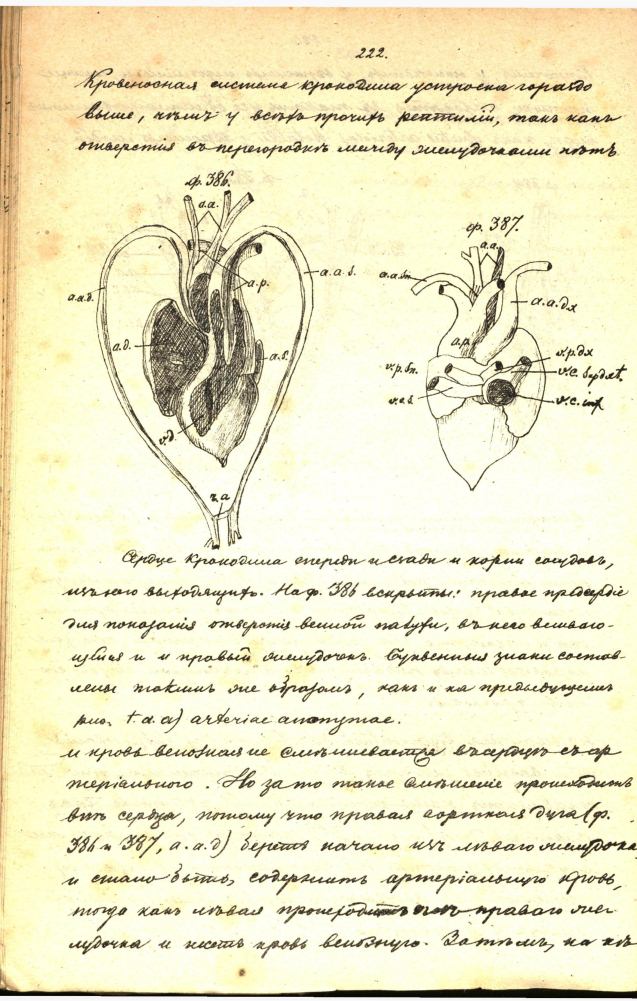 222.
Кровеносная система крокодила устроена гораздо
выше, чѣмъ у всѣхъ прочихъ рептилій, такъ какъ
отверстія въ перегородкѣ между желудочками нѣтъ
ф. 386.
a.a.
ф. 387.
a.a.
a.a.d.
a.p.
a.a.s.
a.a.sn.
a.a.dx
a.d.
a.s.
a.p.
v.p.sn.
v.p.dx
v.c.s.
v.c.inf
v.d.
r.a
Сердце крокодила спереди и сзади и корни сосудовъ,
изъ него выходящихъ. На ф. 386 вскрыты: правое предсердіе
для показанія отверстія венной пазухи, въ него вливаю-
щейся и и правый желудочекъ. Буквенныя знаки состав-
лены такимъ же образомъ, какъ и на предыдущемъ
рис. a. a) arteriae anonymae.
и кровь венозная не смѣшивается въ сердцѣ съ ар
теріальною. Но за то такое смѣшеніе происходитъ
внѣ сердца, потому что правая аортная дуга (ф.
386 и 387, a.a.d) беретъ начало изъ лѣваго желудочка
и стало быть, содержитъ артеріальную кровь,
тогда какъ лѣвая происходитъ изъ праваго же-
лудочка и несетъ кровь венозную. Затѣмъ, на